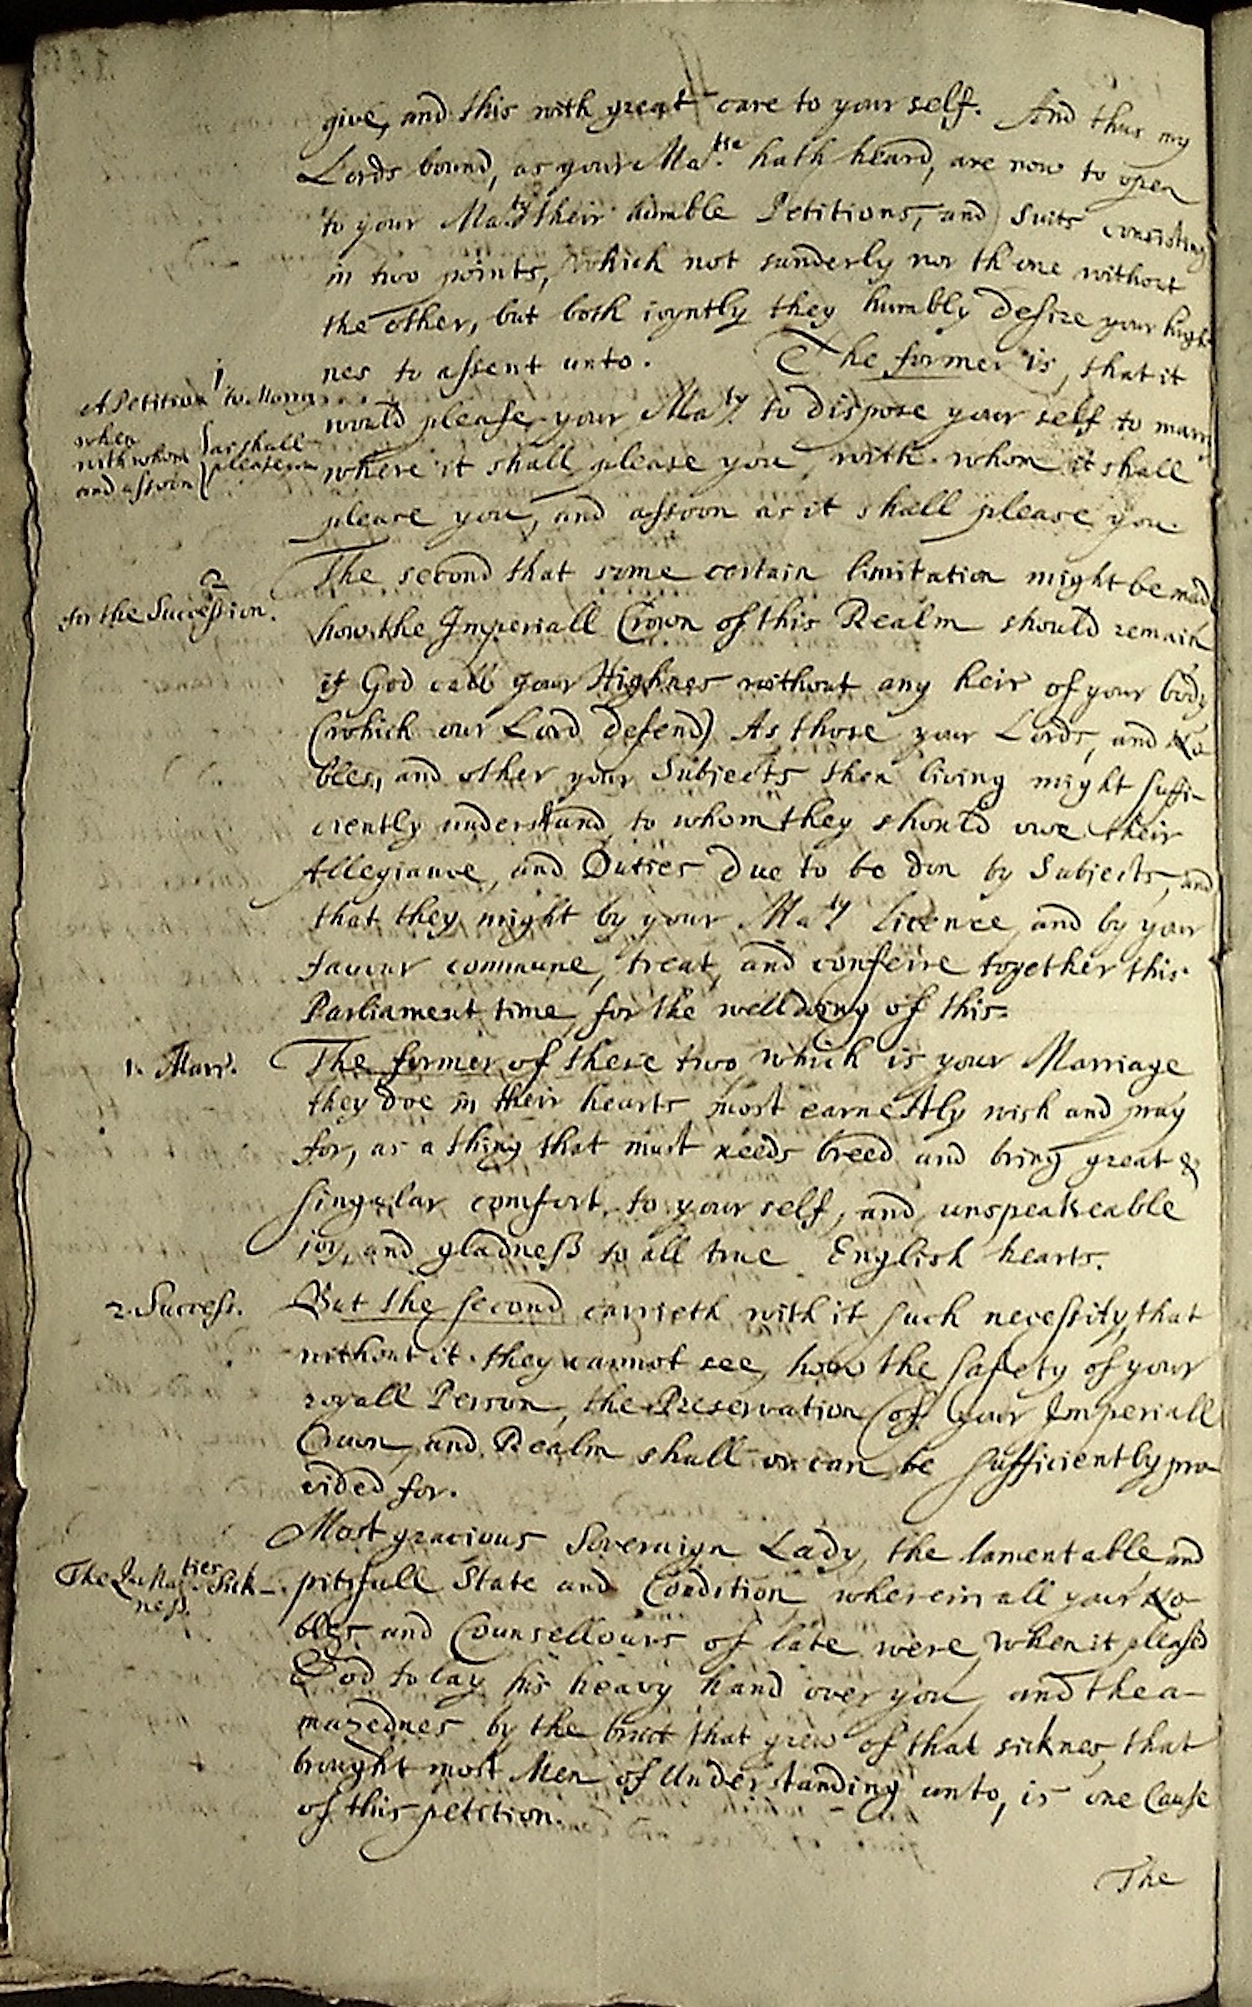 give, and this with great care to your self. And thus my
Lords bound, as your Ma.tie hath heard, are now to open
to your Ma.ty their humble Petitions, and suits consisting
in two points, which not sunderly nor th one without
the other, but both ioyntly they humbly desire your high-
nes to assent unto. The former is, that it
1
A Petition to Marry
when
with whom
and assoon
as shall
please you
would please your Ma.ty to dispose your self to marry
where it shall please you, with whom it shall
please you, and assoon as it shall please you
2
for the Succession.
The second that some certain limitation might be made
how the Imperiall Crown of this Realm should remain
if God call your Highnes without any heir of your body
(which our Lord defend) As those your Lords, and No-
bles, and other your Subjects then living might suffi-
ciently understand to whom they should owe their
Allegiance, and Duties due to be don by Subjects, and
that they might by your Ma.ty licence, and by your
favour commune, treat, and conferre together this
Parliament time, for the well doing of this.
1. Marr.
The former of these two which is your Marriage
they doe in their hearts most earnestly wish and pray
for, as a thing that must needs breed and bring great &
singular comfort to your self, and unspeakeable
ioy, and gladness to all true English hearts.
2. Success.
But the second carrieth with it such necessity, that
without it they cannot see, how the safety of your
royall Person, the Preservation of your Imperiall
Crown, and Realm shall or can be sufficiently pro-
vided for.
Most gracious Soveraign Lady, the lamentable and
The Qu. Ma.ties Sick-
ness.
pitifull State and Condition wherein all your No-
bles and Counsellours of late were, when it pleased
God to lay his heavy hand over you, and the a-
mazednes by the bruct that grew of that sicknes, that
brought most Men of Understanding unto, is one Cause
of this petition.
The